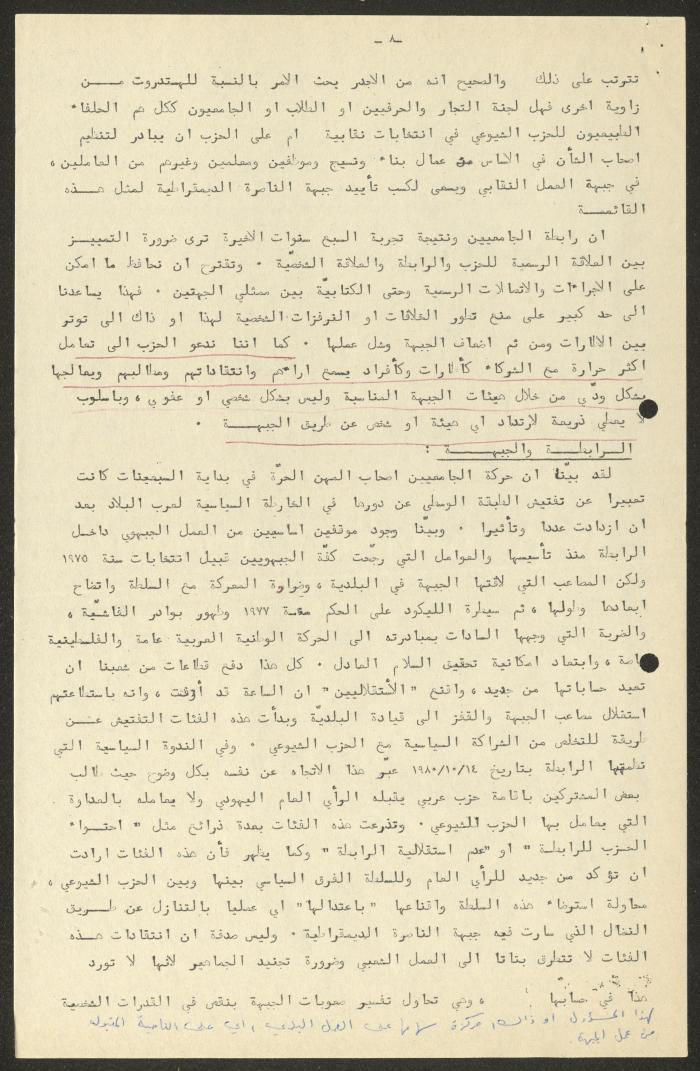 ـ ٨ ـ
تترتب على ذلك والصحيح انه من الاجدر بحث الامر بالنسبة للهستدروت مــــن
زاوية اخرى فهل لجنة التجار والحرفيين او الطلاب او الجامعيون ككل هم الحلفاء
الطبيعيون للحزب الشيوعي في انتخابات نقابية ام على الحزب ان يبادر لتنظيم
اصحاب الشأن في الاساس من عمال بناء ونسيج وموظفين ومعلمين وغيرهم من العاملين ،
في جبهة العمل النقابي ويسعى لكسب تأييد جبهة الناصرة الديمقراطية لمثل هــــذه
القائمــــة
ان رابطة الجامعيين ونتيجة تجربة السبع سنوات الاخيرة ترى ضرورة التمييــز
بين العلاقة الرسمية للحزب والرابطة والعلاقة الشخصيّة ٠ وتقترح ان نحافظ ما امكن
على الاجراءات والاتصالات الرسمية وحتى الكتابيّة بين ممثلي الجهتين ٠ فهذا يساعدنا
الى حد كبير على منع تطور الخلافات او النرفزات الشخصية لهذا او ذاك الى توتر
بين الاطارات ومن ثم اضعاف الجبهة وشل عملها ٠ كما اننا ندعو الحزب الى تعامل
اكثر حرارة مع الشركاء كأطارات وكأفراد يسمع اراءهم وانتقاداتهم ومطالبهم ويعالجها
بشكل ودّي من خلال هيئات الجبهة المناسبة وليس بشكل شخصي او عفوي ، وباسلوب
لا يعطي ذريعة لارتداد اي هيئة او شخص عن طريق الجبهــــة ٠
الــرابطــــة والجبهــــة :
لقد بيّنا ان حركة الجامعيين اصحاب المهن الحرّة في بداية السبعينات كانت
تعبيرا عن تفتيش الطبقة الوسطى عن دورها في الخارطة السياسية لعرب البلاد بعد
ان ازدادت عددا وتأثيرا ٠ وبيّنا وجود موقفين اساسيين من العمل الجبهوي داخــل
الرابطة منذ تأسيسها والعوامل التي رجّحت كفّة الجبهويين قبيل انتخابات سنة ١٩٧٥
ولكن المصاعب التي لاقتها الجبهة في البلدية ، وضراوة المعركة مع السلطة واتضاح
ابعادها وطولها ، ثم سيطرة الليكود على الحكم سنة ١٩٧٧ وظهور بوادر الفاشيّة ،
والضربة التي وجهها السادات بمبادرته الى الحركة الوطنية العربية عامة والفلسطينية
خاصة ، وابتعاد امكانية تحقيق السلام العادل ٠ كل هذا دفع قطاعات من شعبنا ان
تعيد حساباتها من جديد ، واقتنع "الأستقلاليين" ان الساعة قد أزفت ، وانه باستطاعتهم
استغلال مصاعب الجبهة والقفز الى قيادة البلديّة وبدأت هذه الفئات التفتيش عــــن
طريقة للتخلص من الشراكة السياسية مع الحزب الشيوعي ٠ وفي الندوة السياسية التي
نظمتها الرابطة بتاريخ ١٩٨٠/١٠/١٤ عبّر هذا الاتجاه عن نفسه بكل وضوح حيث طالب
بعض المشتركين باقامة حزب عربي يتقبله الرأي العام اليهودي ولا يعامله بالعداوة
التي يعامل بها الحزب الشيوعي ٠ وتذرعت هذه الفئات بعدة ذرائع مثل " احتــواء
الحــزب للرابطــة " او "عدم استقلالية الرابطة " وكما يظهر فأن هذه الفئات ارادت
ان تؤكد من جديد للرأي العام وللسلطة الفرق السياسي بينها وبين الحزب الشيوعي ،
محاولة استرضاء هذه السلطة واقناعها "باعتدالها" اي عمليا بالتنازل عن طــريق
النضال الذي سارت فيه جبهة الناصرة الديمقراطية ٠ وليس صدفة ان انتقادات هــــذه
الفئات لا تتطرق بتاتا الى العمل الشعبي وضرورة تجنيد الجماهير لانها لا تورد
هذا في حسابها ، وهي تحاول تفسير صعوبات الجبهة بنقص في القدرات الشخصية
لهذا المسؤول او ذاك، مركزة سهامها على العمل البلدي ، اي على الناحية
من عمل الجبهة.